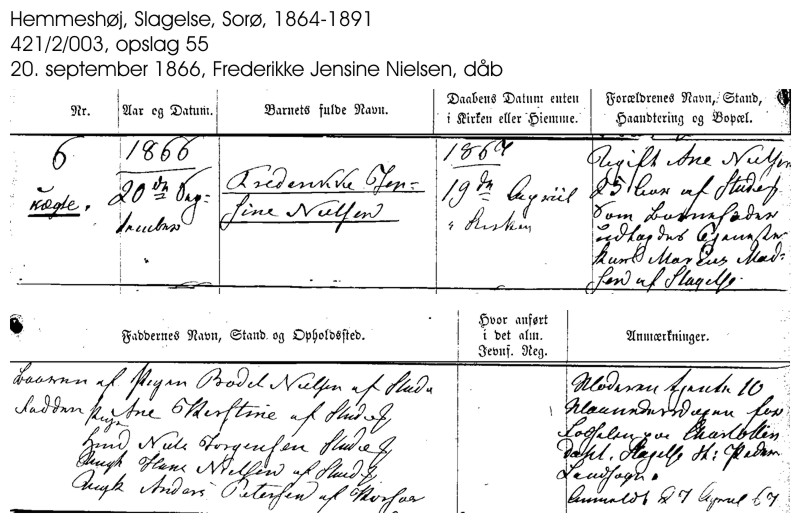 Hemmeshøj, Slagelse, Sorø, 1864-1891
421/2/003, opslag 55
20. september 1866, Frederikke Jensine Nielsen, dåb
Nr.
Aar og Datum.
Barnets fulde Navn.
Daabens Datum enten
i Kirken eller Hiemme.
Forældrenes Navn, Stand,
Haandtering og Bopæl.
6
Uægte.
1866
20de Sep-
tember
Frederikke Jen-
sine Nielsen
1867
19de April
i Kirken
Ugift Ane Nielsen
25 Aar af
Som Barnefader
udlagdes Tjeneste
karl Marius Mad-
sen af Slagelse
Faddernes Navn, Stand og Opholdssted.
Hvor anført
i det alm.
Jevnf. Reg.
Anmærkninger.
Baaren af Pigen Bodel Nielsen af
Faddere Pigen Ane Kirstine af
Hmd Niels Jørgensen
Ungk Hans Nielsen af
Ungk Anders Petersen af
Moderen tjente 10
Maaneder for
Fødselen paa Charlotten
dahl, Slagelse St: Peders
Landsogn.
Anmeldt d 7 April 67